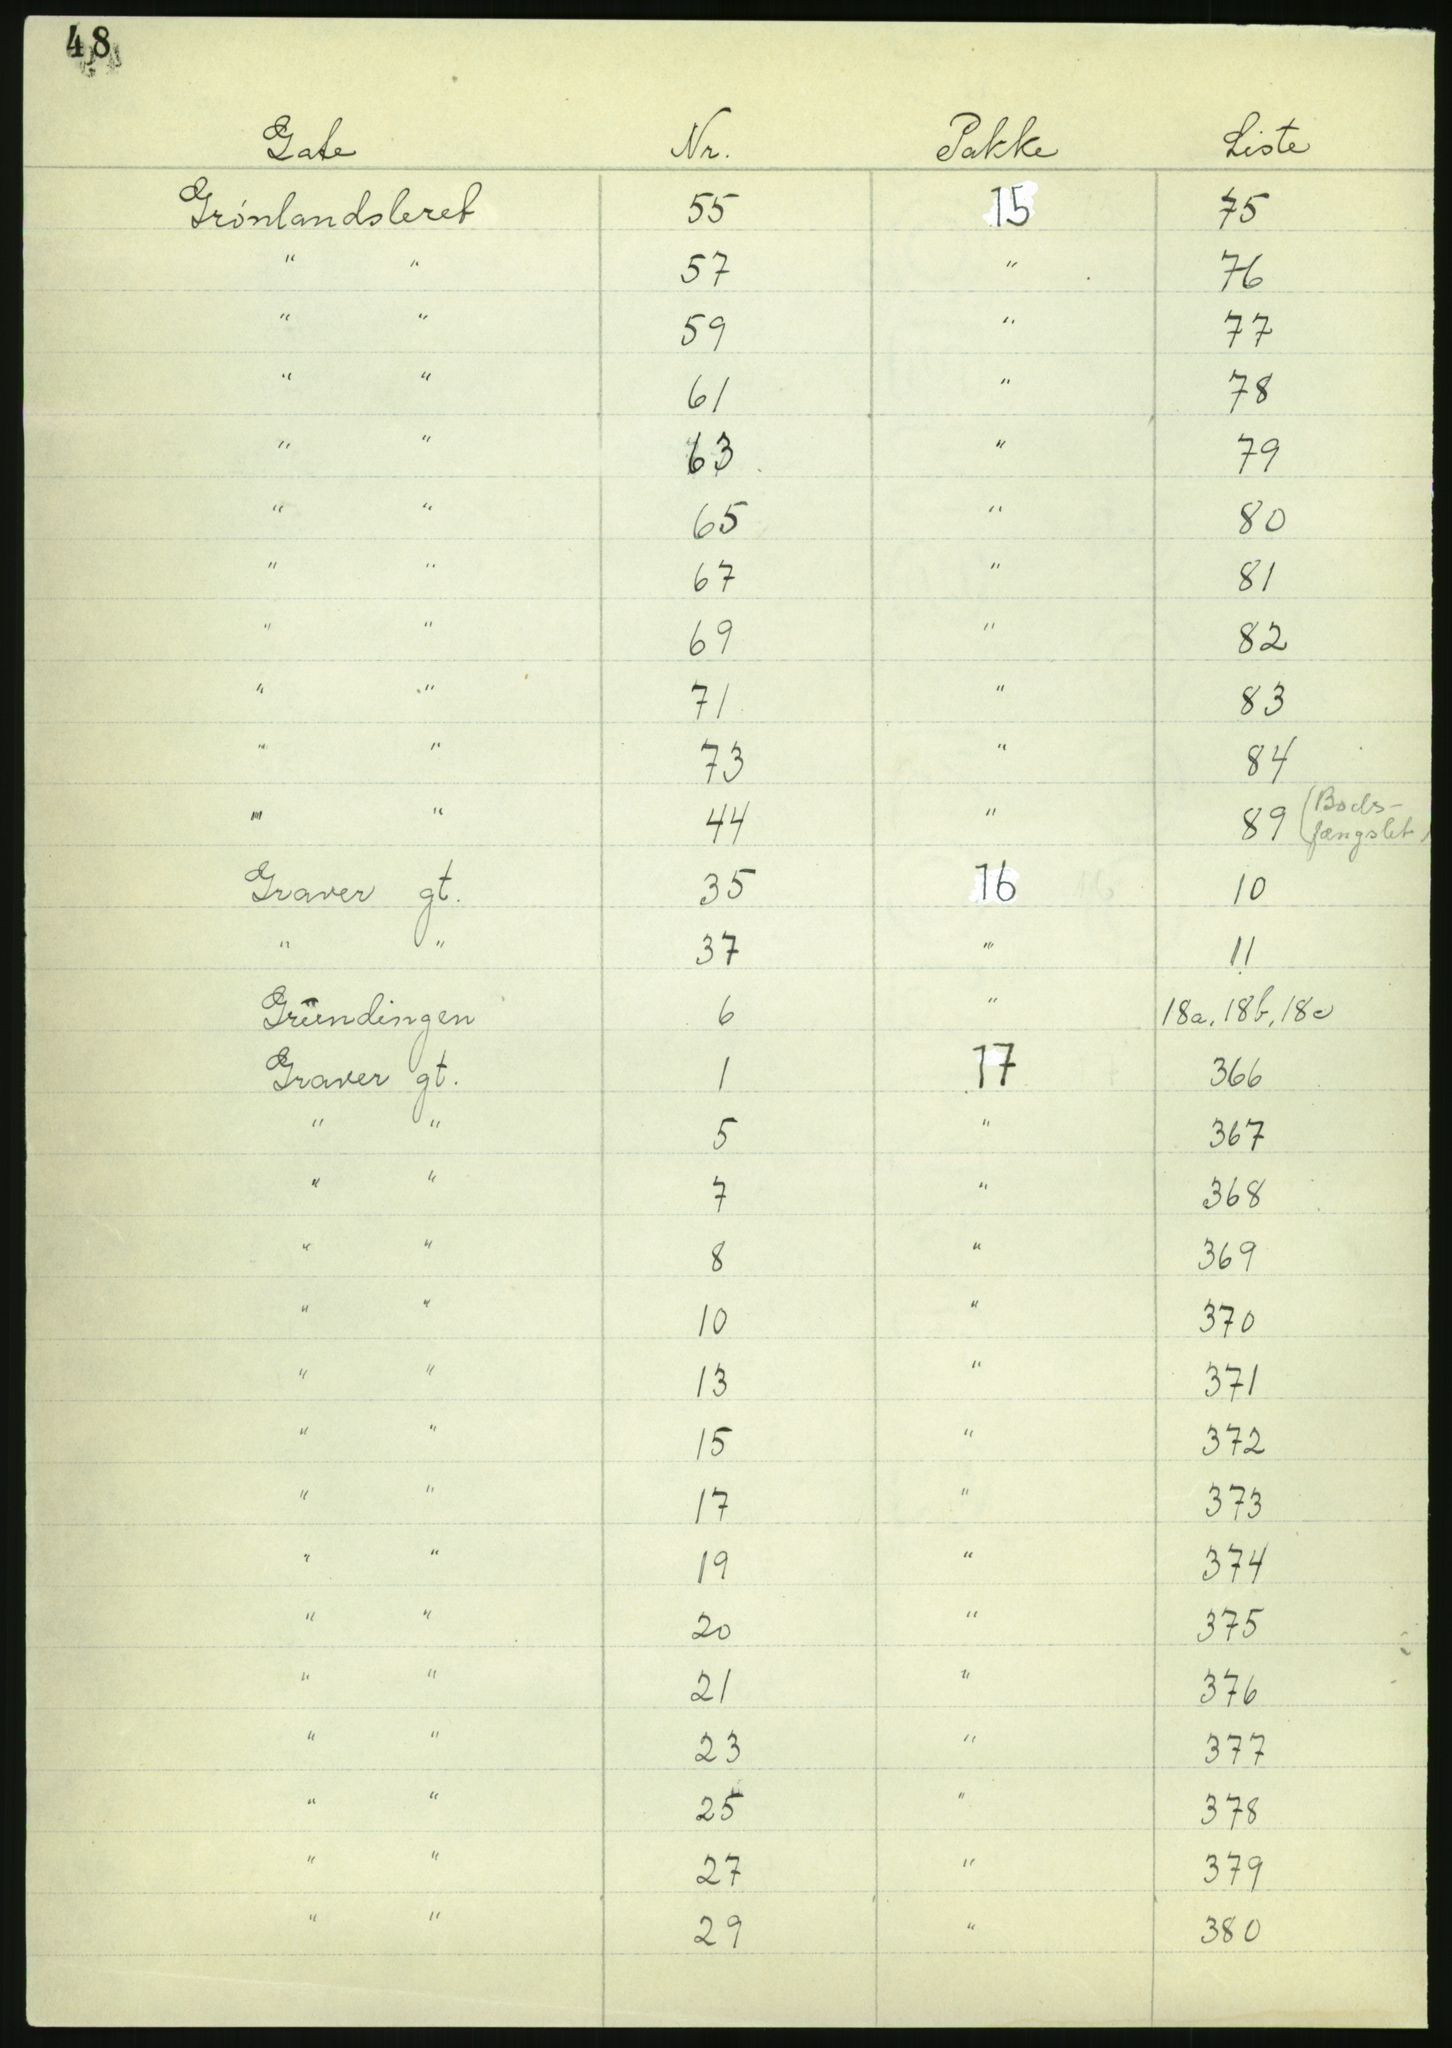 48
Gate Nr. Pakke Liste
Grónlandsleret 55 15 75
" " 57 " 76
" " 59 " 77
" " 61 " 78
" " 63 " 79
" " 65 " 80
" " 67 " 81
" " 69 " 82
" " 71 " 83
" " 73 " 84
" " 44 " 89 (Bods-
fængslet)
Graver gt. 35 16 10
" " 37 " 11
Gründingen 6 " 18a, 18b, 18c
Graver gt. 1 17 366
" " 5 " 367
" " 7 " 368
" " 8 " 369
" " 10 " 370
" " 13 " 371
" " 15 " 372
" " 17 " 373
" " 19 " 374
" " 20 " 375
" " 21 " 376
" " 23 " 377
" " 25 " 378
" " 27 " 379
" " 29 " 380